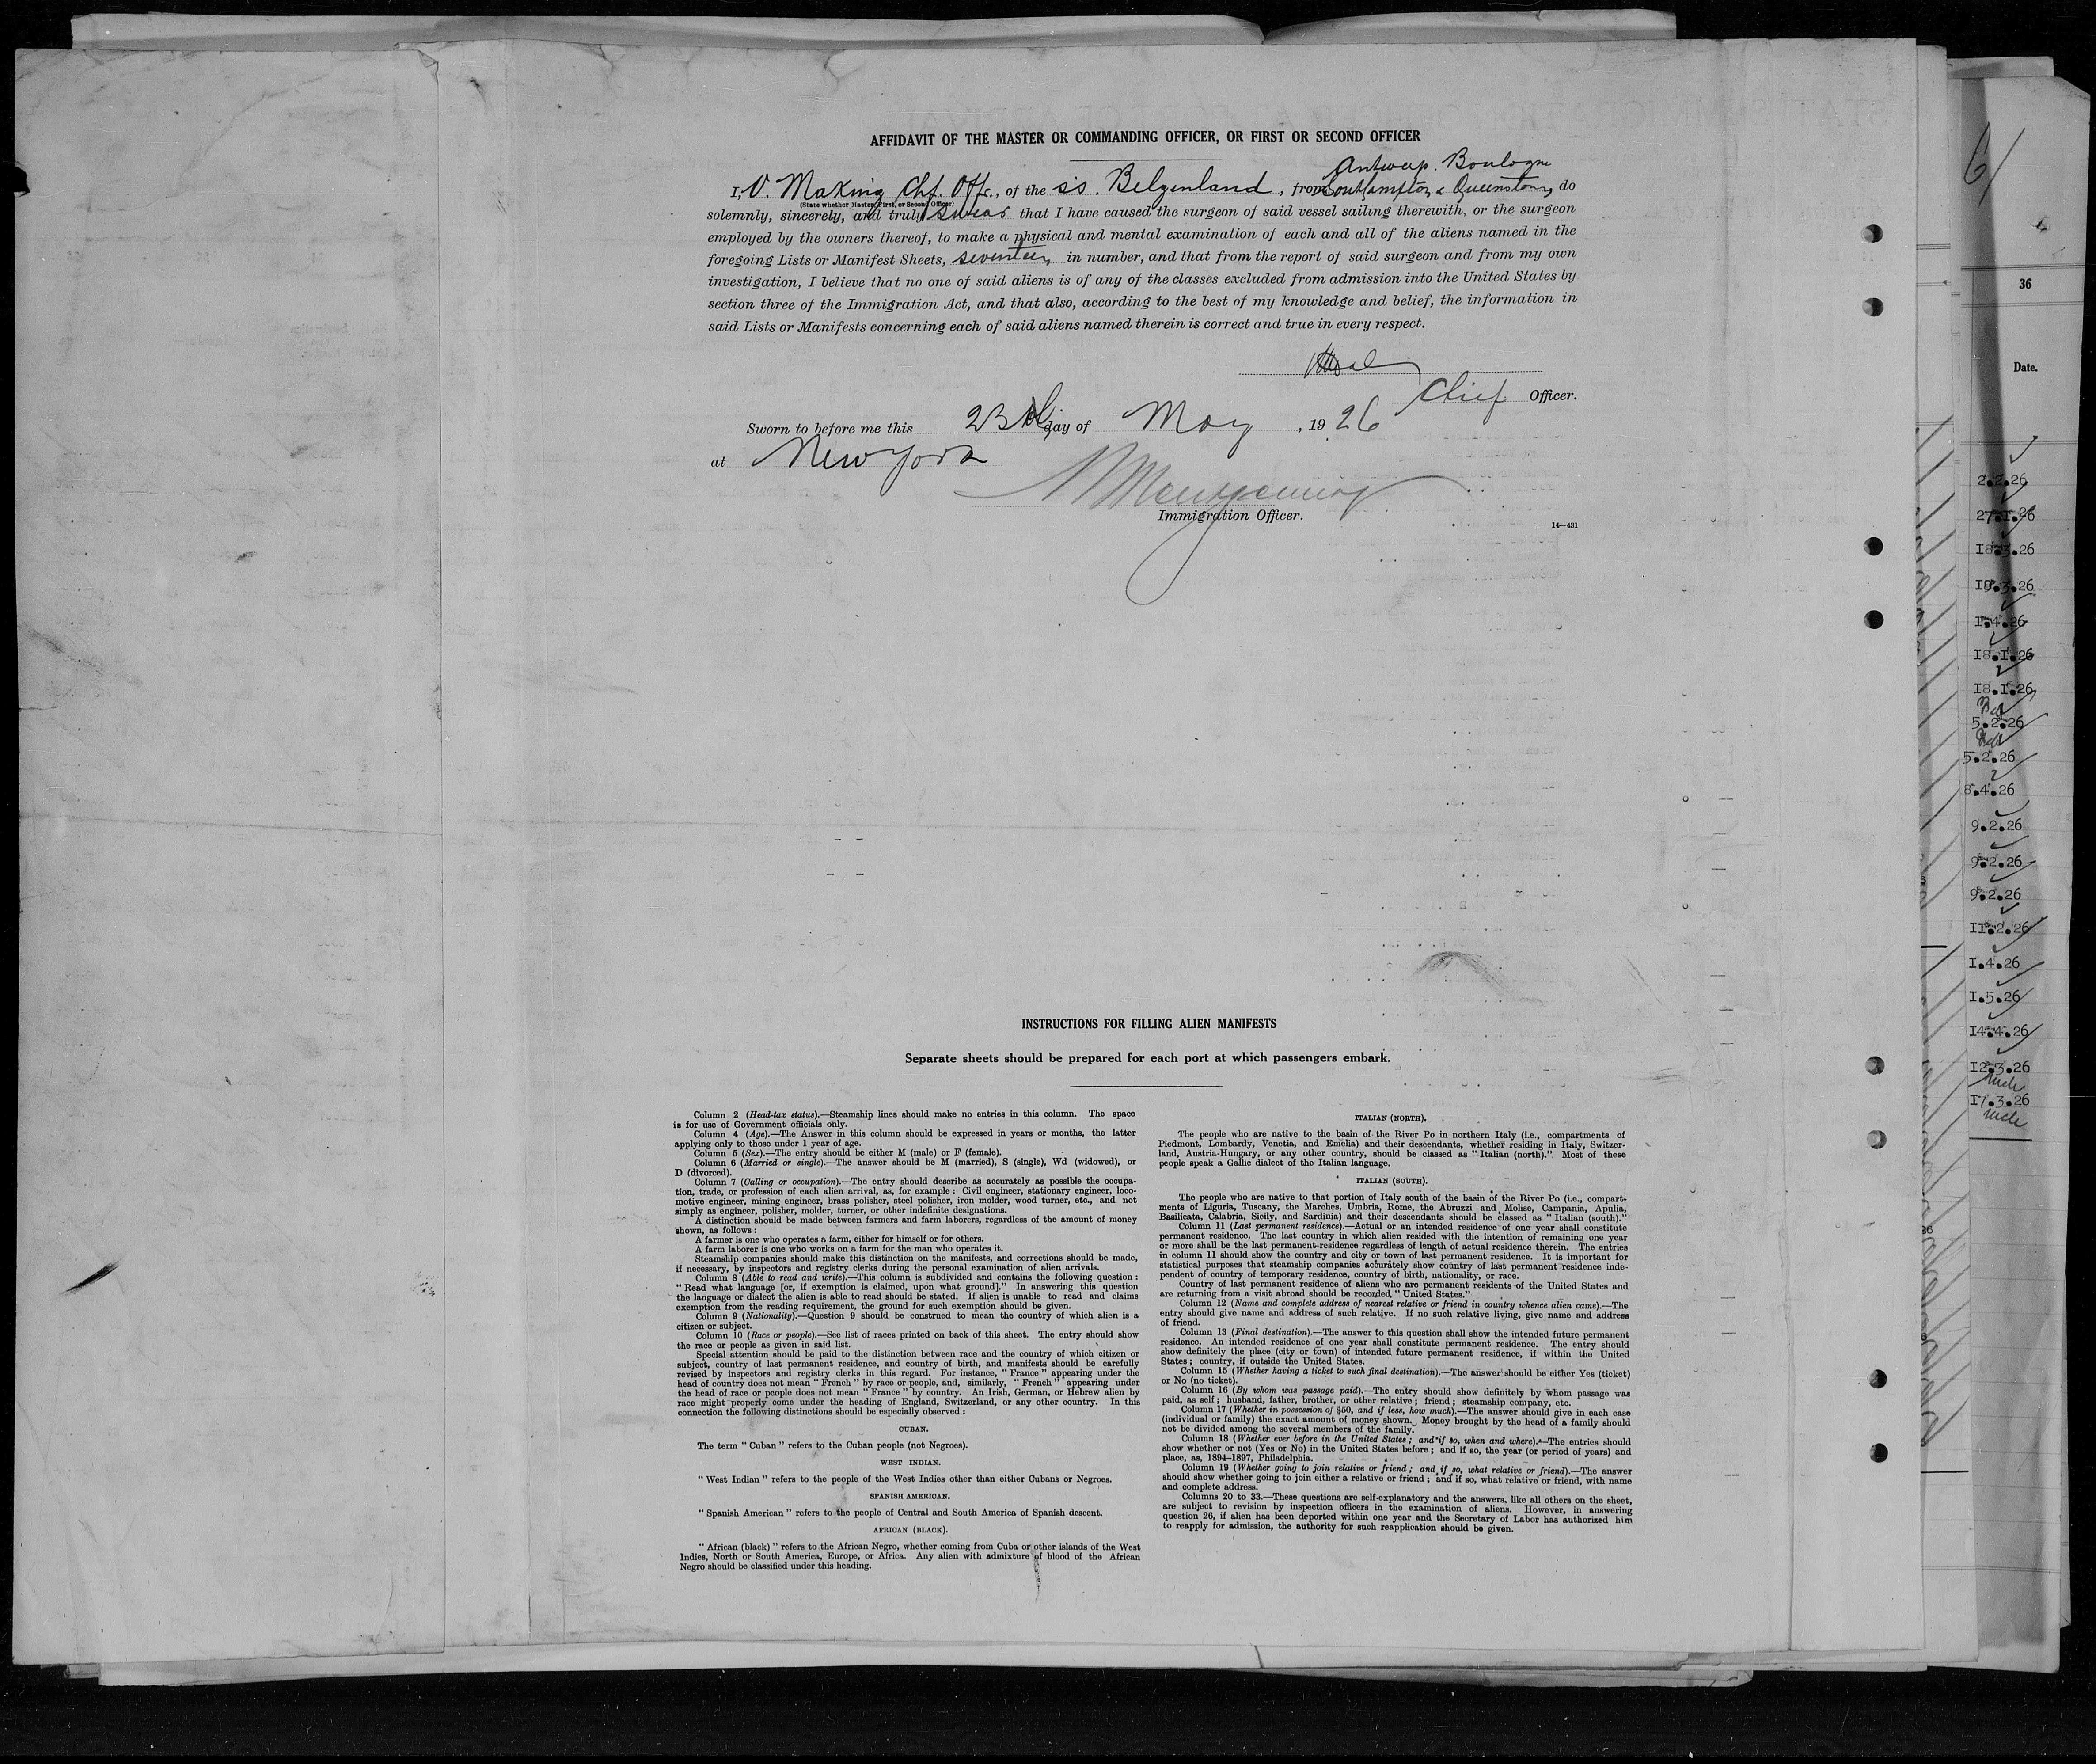 AFFIDAVIT OF THE MASTER OR COMMANDING OFFICER, OR FIRST OR SECOND OFFICER
Antwerp. Boulogne
I, V. Making Chf. Offr., of the s.s. Belgenland, from Southampton & Queenstown, do
(State whether Master, First, or Second Officer)
solemnly, sincerely, and truly swear that I have caused the surgeon of said vessel sailing therewith, or the surgeon
employed by the owners thereof, to make a physical and mental examination of each and all of the aliens named in the
foregoing Lists or Manifest Sheets, seventeen in number, and that from the report of said surgeon and from my own
investigation, I believe that no one of said aliens is of any of the classes excluded from admission into the United States by
section three of the Immigration Act, and that also, according to the best of my knowledge and belief, the information in
said Lists or Manifests concerning each of said aliens named therein is correct and true in every respect.
Chief Officer.
Sworn to before me this 23 day of May, 1926
at New York
Immigration Officer.
14—431
INSTRUCTIONS FOR FILLING ALIEN MANIFESTS
Separate sheets should be prepared for each port at which passengers embark.
Column 2 (Head-tax status).—Steamship lines should make no entries in this column. The space
is for use of Government officials only.
Column 4 (Age).—The Answer in this column should be expressed in years or months, the latter
applying only to those under 1 year of age.
Column 5 (Sex).—The entry should be either M (male) or F (female).
Column 6 (Married or single).—The answer should be M (married), S (single), Wd (widowed), or
D (divorced).
Column 7 (Calling or occupation).—The entry should describe as accurately as possible the occupa-
tion, trade, or profession of each alien arrival, as, for example: Civil engineer, stationary engineer, loco-
motive engineer, mining engineer, brass polisher, steel polisher, iron molder, wood turner, etc., and not
simply as engineer, polisher, molder, turner, or other indefinite designations.
A distinction should be made between farmers and farm laborers, regardless of the amount of money
shown, as follows:
A farmer is one who operates a farm, either for himself or for others.
A farm laborer is one who works on a farm for the man who operates it.
Steamship companies should make this distinction on the manifests, and corrections should be made,
if necessary, by inspectors and registry clerks during the personal examination of alien arrivals.
Column 8 (Able to read and write).—This column is subdivided and contains the following question:
"Read what language [or, if exemption is claimed, upon what ground]." In answering this question
the language or dialect the alien is able to read should be stated. If alien is unable to read and claims
exemption from the reading requirement, the ground for such exemption should be given.
Column 9 (Nationality).—Question 9 should be construed to mean the country of which alien is a
citizen or subject.
Column 10 (Race or people).—See list of races printed on back of this sheet. The entry should show
the race or people as given in said list.
Special attention should be paid to the distinction between race and the country of which citizen or
subject, country of last permanent residence, and country of birth, and manifests should be carefully
revised by inspectors and registry clerks in this regard. For instance, "France" appearing under the
head of country does not mean "French" by race or people, and, similarly, "French" appearing under
the head of race or people does not mean "France" by country. An Irish, German, or Hebrew alien by
race might properly come under the heading of England, Switzerland, or any other country. In this
connection the following distinctions should be especially observed:
CUBAN.
The term "Cuban" refers to the Cuban people (not Negroes).
WEST INDIAN.
"West Indian" refers to the people of the West Indies other than either Cubans or Negroes.
SPANISH AMERICAN.
"Spanish American" refers to the people of Central and South America of Spanish descent.
AFRICAN (BLACK).
"African (black)" refers to the African Negro, whether coming from Cuba or other islands of the West
Indies, North or South America, Europe, or Africa. Any alien with admixture of blood of the African
Negro should be classified under this heading.
ITALIAN (NORTH).
The people who are native to the basin of the River Po in northern Italy (i.e., compartments of
Piedmont, Lombardy, Venetia, and Emelia) and their descendants, whether residing in Italy, Switzer-
land, Austria-Hungary, or any other country, should be classed as "Italian (north)." Most of these
people speak a Gallic dialect of the Italian language.
ITALIAN (SOUTH).
The people who are native to that portion of Italy south of the basin of the River Po (i.e., compart-
ments of Liguria, Tuscany, the Marches, Umbria, Rome, the Abruzzi and Molise, Campania, Apulia,
Basilicata, Calabria, Sicily, and Sardinia) and their descendants should be classed as "Italian (south)."
Column 11 (Last permanent residence).—Actual or an intended residence of one year shall constitute
permanent residence. The last country in which alien resided with the intention of remaining one year
or more shall be the last permanent-residence regardless of length of actual residence therein. The entries
in column 11 should show the country and city or town of last permanent residence. It is important for
statistical purposes that steamship companies accurately show country of last permanent residence inde-
pendent of country of temporary residence, country of birth, nationality, or race.
Country of last permanent residence of aliens who are permanent residents of the United States and
are returning from a visit abroad should be recorded, "United States."
Column 12 (Name and complete address of nearest relative or friend in country whence alien came).—The
entry should give name and address of such relative. If no such relative living, give name and address
of friend.
Column 13 (Final destination).—The answer to this question shall show the intended future permanent
residence. An intended residence of one year shall constitute permanent residence. The entry should
show definitely the place (city or town) of intended future permanent residence, if within the United
States; country, if outside the United States.
Column 15 (Whether having a ticket to such final destination).—The answer should be either Yes (ticket)
or No (no ticket).
Column 16 (By whom was passage paid).—The entry should show definitely by whom passage was
paid, as self; husband, father, brother, or other relative; friend; steamship company, etc.
Column 17 (Whether in possession of $50, and if less, how much).—The answer should give in each case
(individual or family) the exact amount of money shown. Money brought by the head of a family should
not be divided among the several members of the family.
Column 18 (Whether ever before in the United States; and if so, when and where).—The entries should
show whether or not (Yes or No) in the United States before; and if so, the year (or period of years) and
place, as, 1894–1897, Philadelphia.
Column 19 (Whether going to join relative or friend; and if so, what relative or friend).—The answer
should show whether going to join either a relative or friend; and if so, what relative or friend, with name
and complete address.
Columns 20 to 33.—These questions are self-explanatory and the answers, like all others on the sheet,
are subject to revision by inspection officers in the examination of aliens. However, in answering
question 26, if alien has been deported within one year and the Secretary of Labor has authorized him
to reapply for admission, the authority for such reapplication should be given.
36
Date.
2.2.26
27.1.26
18.3.26
18.3.26
1.4.26
18.1.26
18.1.26
5.2.26
5.2.26
8.4.26
9.2.26
9.2.26
9.2.26
11.2.26
1.4.26
1.5.26
14.4.26
12.3.26
17.3.26